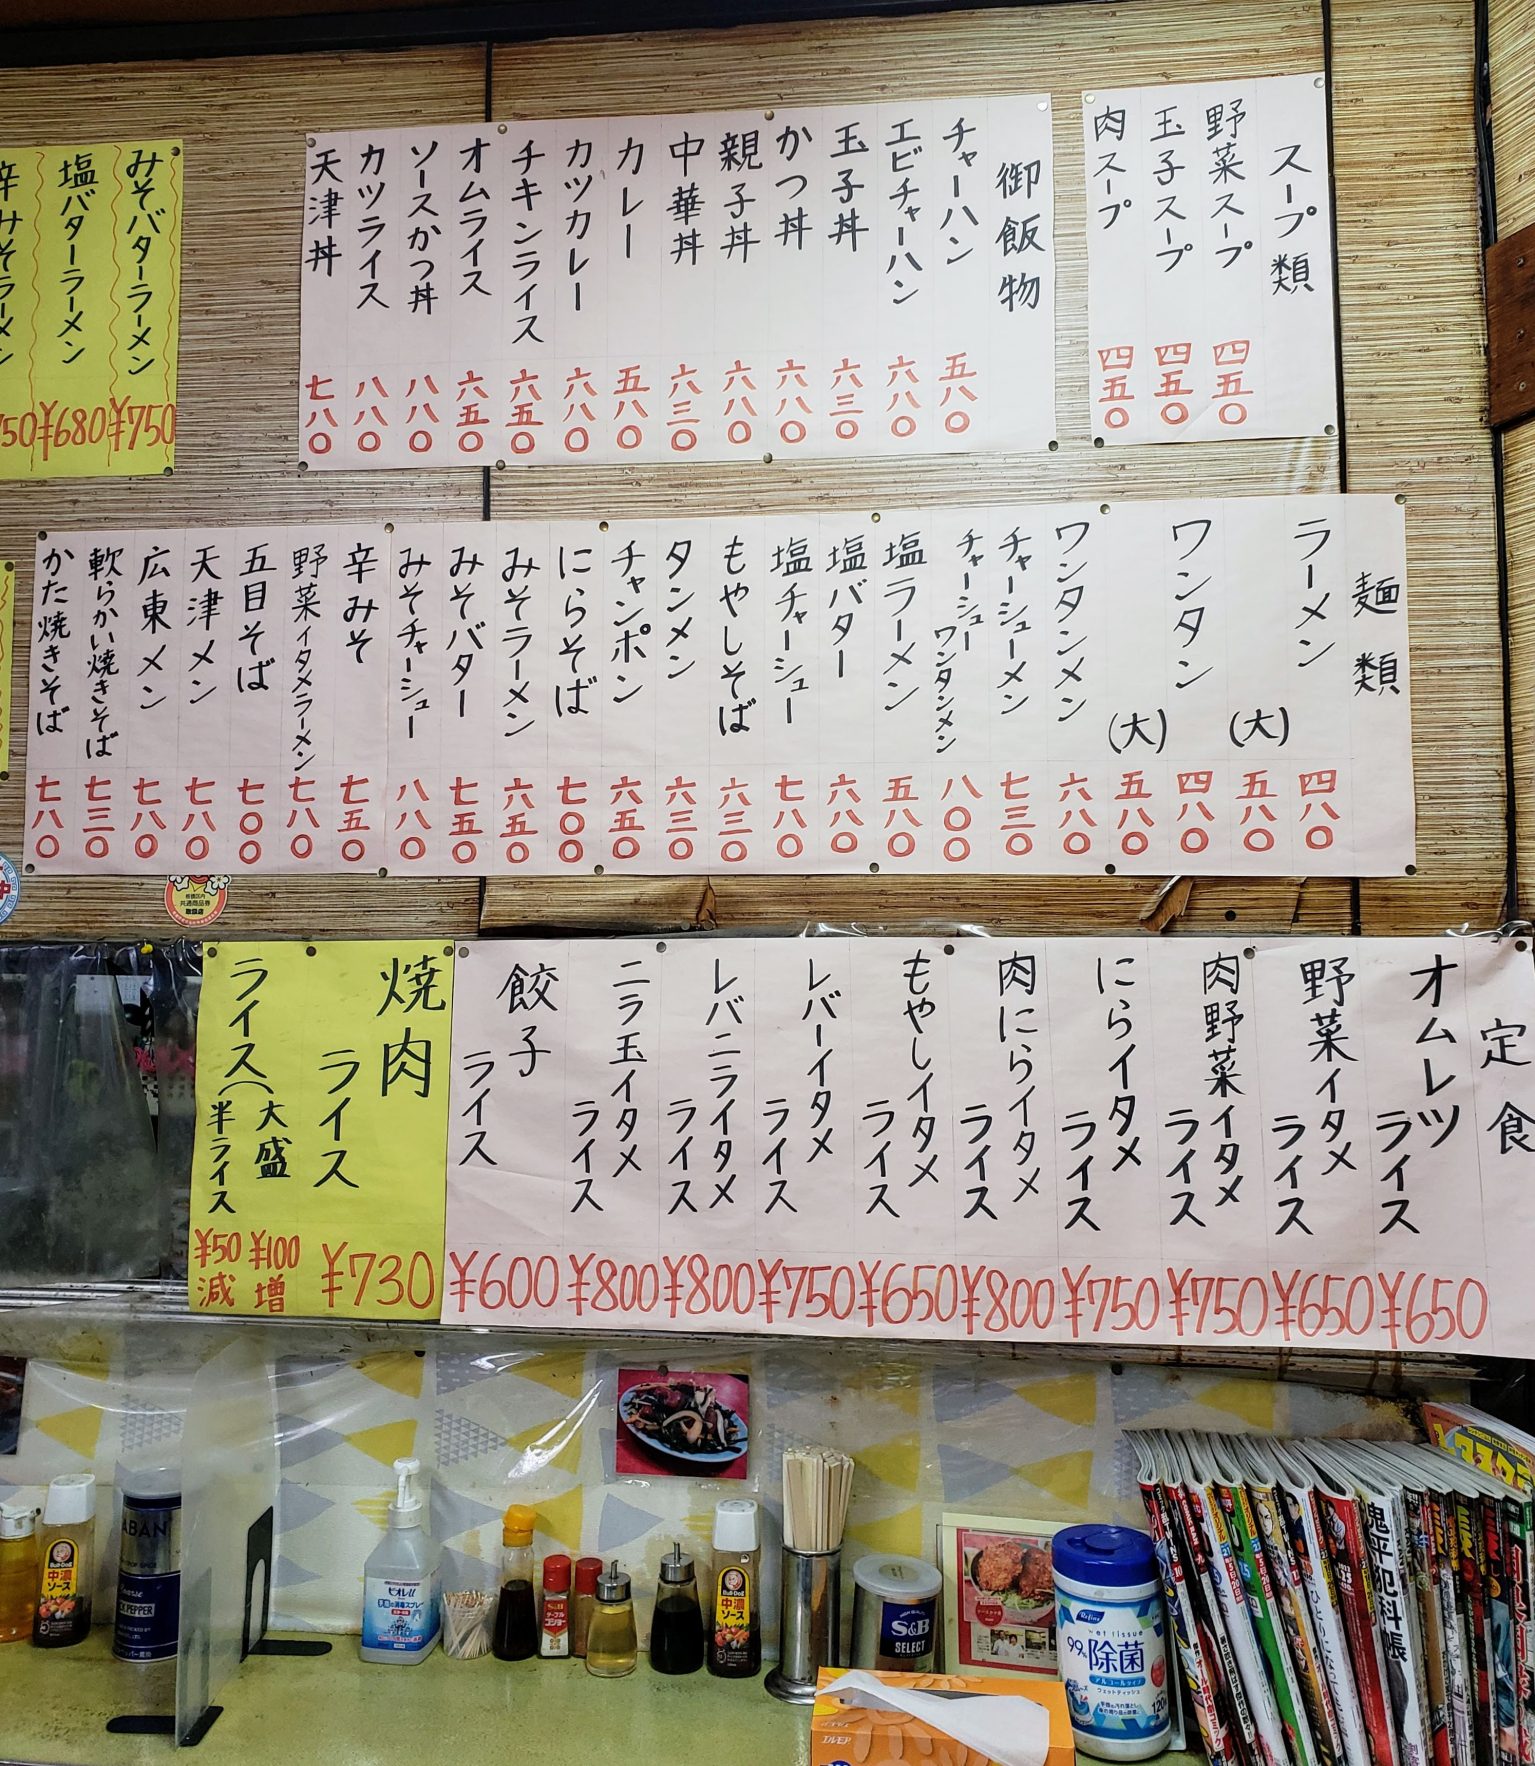 スープ類
野菜スープ 四五〇
玉子スープ 四五〇
肉スープ 四五〇
御飯物
チャーハン 五八〇
エビチャーハン 六八〇
玉子丼 六三〇
かつ丼 六八〇
親子丼 六八〇
中華丼 六三〇
カレー 五八〇
カツカレー 六八〇
チキンライス 六五〇
オムライス 六五〇
ソースかつ丼 八八〇
カツライス 八八〇
天津丼 七八〇
みそバターラーメン ¥750
塩バターラーメン ¥680
辛みそラーメン
麺類
ラーメン 四八〇
(大) 五八〇
ワンタン 四八〇
(大) 五八〇
ワンタンメン 六八〇
チャーシューメン 七三〇
チャーシューワンタンメン 八〇〇
塩ラーメン 五八〇
塩バター 六八〇
塩チャーシュー 七八〇
もやしそば 六三〇
タンメン 六三〇
チャンポン 六五〇
にらそば 七〇〇
みそラーメン 六五〇
みそバター 七五〇
みそチャーシュー 八八〇
辛みそ 七五〇
野菜イタメラーメン 七八〇
五目そば 七〇〇
天津メン 七八〇
広東メン 七八〇
軟らかい焼きそば 七三〇
かた焼きそば 七八〇
共通商品券
取扱店
定食
オムレツライス ¥650
野菜イタメライス ¥650
肉野菜イタメライス ¥750
にらイタメライス ¥750
肉にらイタメライス ¥800
もやしイタメライス ¥650
レバーイタメライス ¥750
レバニライタメライス ¥800
ニラ玉イタメライス ¥800
餃子ライス ¥600
焼肉ライス ¥730
ライス(大盛 ¥100増
半ライス ¥50減
Bull-Dog
中濃ソース
ビオレu
S&B
テーブルコショー
Bull-Dog
中濃ソース
S&B
SELECT
エルモア
wet tissue
99%除菌
アルコールタイプ
ウェットティッシュ
鬼平犯科帳